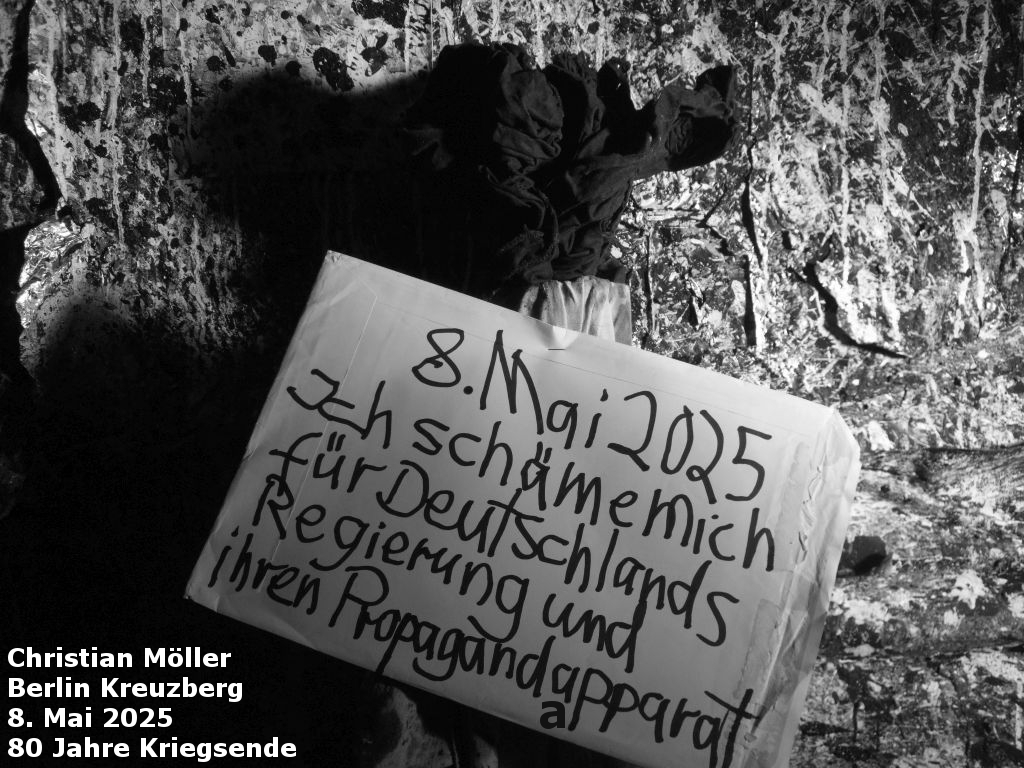 8. Mai 2025
Ich schäme mich
für Deutschlands
Regierung und
ihren Propagandapparat
a
Christian Möller
Berlin Kreuzberg
8. Mai 2025
80 Jahre Kriegsende